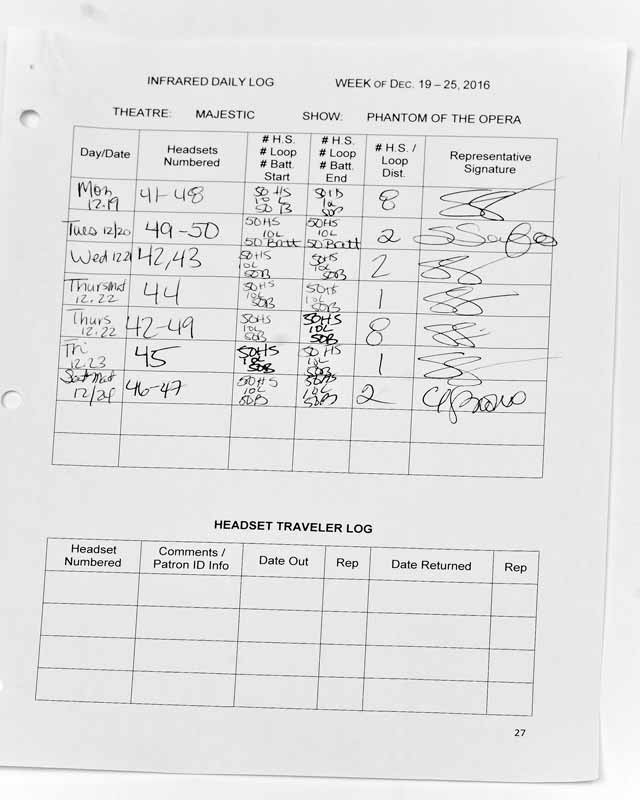 INFRARED DAILY LOG WEEK OF DEC. 19 – 25, 2016
THEATRE: MAJESTIC SHOW: PHANTOM OF THE OPERA
Day/Date Headsets Numbered # H.S. # Loop # Batt. Start # H.S. # Loop # Batt. End # H.S. / Loop Dist. Representative Signature
Mon 12.19 41-48 50 HS 10 L 50 B 8
Tues 12/20 49-50 50HS 10L 50 Batt 50HS 10L 50 Batt 2
Wed 12.21 42,43 50HS 10L 50B 50HS 10L 50B 2
Thurs Mat 12.22 44 50HS 10L 50B 50HS 10L 50B 1
Thurs 12.22 42-49 50HS 10L 50B 50HS 10L 50B 8
Fri 12.23 45 50HS 10L 50B 50HS 10L 50B 1
Sat Mat 12/24 46-47 50HS 10L 50B 50HS 10L 50B 2
HEADSET TRAVELER LOG
Headset Numbered Comments / Patron ID Info Date Out Rep Date Returned Rep
27